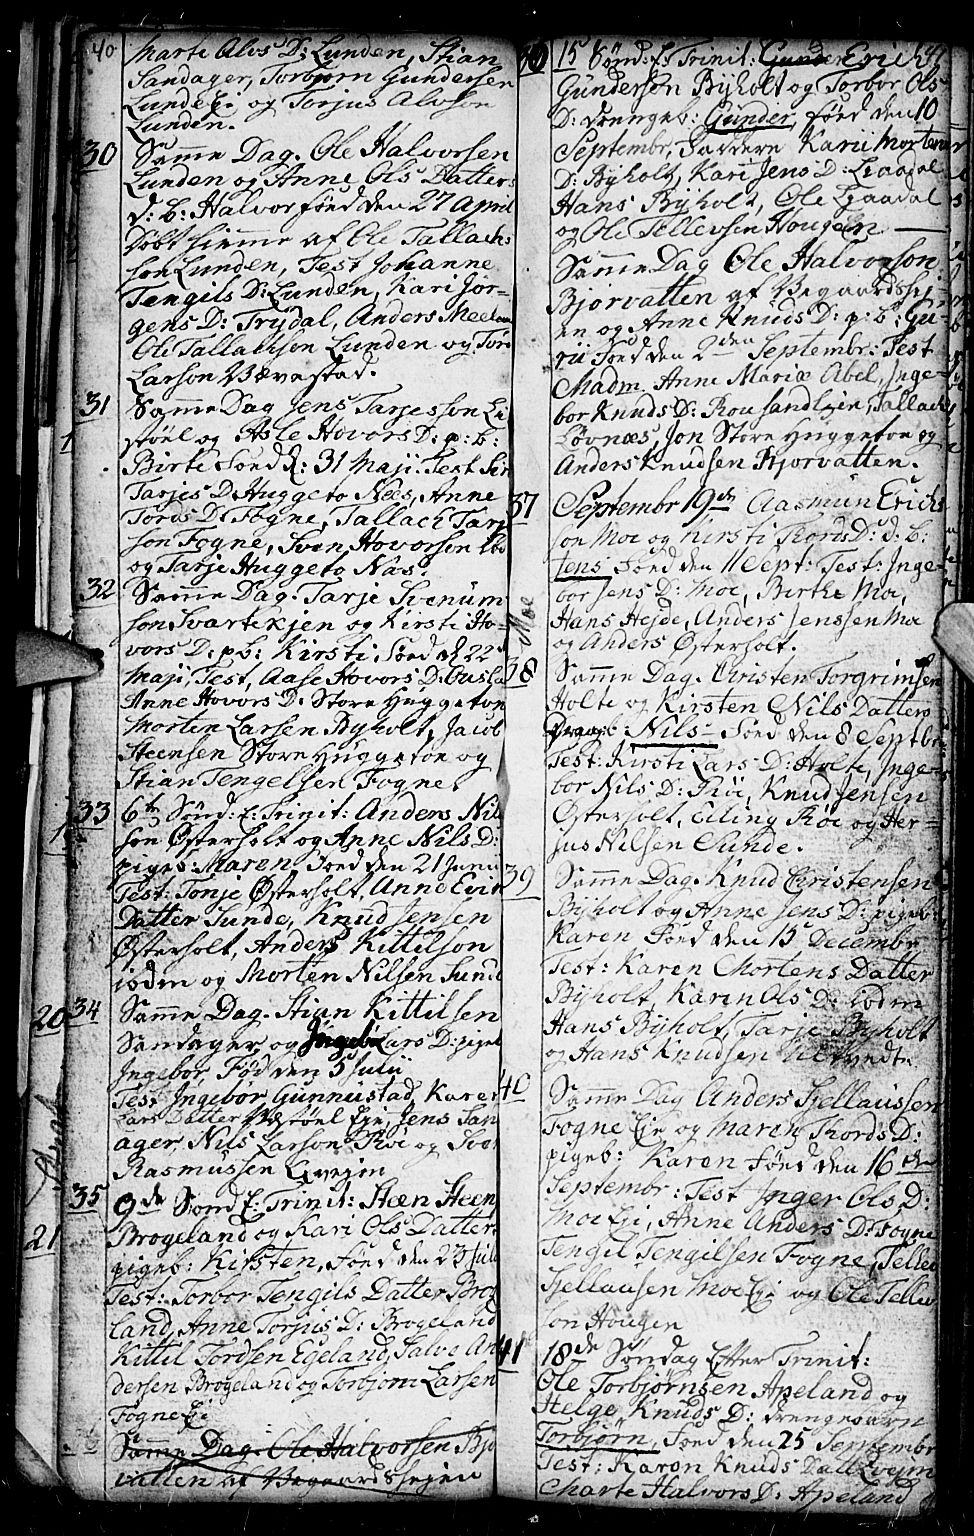 40
Marte Alvs D: Lunden, Stian
Sandager, Torbjørn Gundersen
Lunde Eje og Torjus Alvson
Lunden.
30
Samme Dag. Ole Halvorsen
Lunden og Anne Ols Datters
d: b: Halvor føed den 27 April
døbt hiemme af Ole Tallach-
son Lunden, Test Johanne
Tengils D: Lunden, Kari Jør-
gens D: Trydal, Anders Meelan
Ole Tallakson Lunden og Tor
Larson Vævestad.
31
Samme Dag Jens Tarjesson Li
støel og Asle Hovors D: p: b:
Birte Føed d: 31 Maji. Test Siri
Tarjes D: Huggeto Nees, Anne
Tords D: Fogne, Tallach Tarje
son Fogne, Sven Hovorsen
og Tarje Huggeto Næs.
32
Samme Dag. Tarje Svenum
son Svartekjen og Kirsti Ho-
vors D: p: b: Kirsti, Føed d. 22
Maji, Test, Aase Hovors D:
Anne Hovors D: Store Huggeton
Morten Larsen Byholt, Jacob
Steensen Store Huggeton og
Stian Tengelsen Fogne.
33
6te Sønd: E: Trinit: Anders Nil
son Østerholt og Anne Nils D:
piges: Maren Føed den 21 Junii
Test: Tonje Østerholt, Anne Erik
Datter Sunde, Knud Jensen
Østerholt, Anders Kittilson
jødm og Morten Nilsen Sunde
20
34
Samme Dag. Stian Kittilsen
Sandager og Lars D: pigeb
Ingebor, Fød den 5 Julii
Test Ingebor Gunnustad, Karen
Lars Datter Vestøel Eje, Jens San
ager, Nils Larson Roe og
Rasmussen Livejm
35
21
9de Sønd E: Trinit: Steen Steen
Brogeland og Kari Ols Datter
pigeb: Kirsten, Føed den 23 Julii
Test: Torbor Tengils Datter Brog
land, Anne Torjus D: Brogeland
Kittil Tordsen Egeland, Salve An
dersen Brogeland og Torbjørn Larsen
Fogne Eje
Samme Dag. Ole Halvorsen Bjor
vatten af Vegaardsheien
15 Sønd: E: Trinit: Gunder Erich
Gundersen Byholt og Torbor Ols
D: drengeb: Gunder, føed den 10
Septembr, Faddere Karii Mortens
D: Byholt, Kari Jens D: Liaadal
Hans Byholt, Ole Liaadal
og Ole Tellevsen Hougen
Samme Dag Ole Halvorson
Bjorvatten af Vegaardshej-
en og Anne Knuds D: p: b: Gu-
rii Føed den 2den Septembr: Test
Madm. Anne Mariæ Abel, Inge-
bor Knuds D: Rousandlejen, Tallach
Løvnæs, Jon Store Huggeton og
Anders Knudsen Bjorvatten.
37
Septembr 19de Aasmun Erichs
son Moe og Kirsti Thords D: d: b:
Jens Føed den 11 Sept: Test: Inge-
bor Jens D: Moe, Birthe Moe,
Hans Hejde, Anders Jenssen Moe
og Anders Østerholt.
Moe
38
Samme Dag. Christen Torgrimsen
Holte og Kirsten Nils Datters
Drængb Nils Føed den 8 Septbr
Test: Kirsti Lars D: Holte, Inge-
bor Nils D: Roe, Knud Jensen
Østerholt, Elling Roe og Her-
jus Nilsen Sunde.
39
Samme Dag. Knud Christensen
Byholt og Anne Jens D: pigeb:
Karen Føed den 15 Decembr
Test: Karen Mortens Datter
Byholt, Karen Ols D: Lødm
Hans Byholt, Tarje Byholt
og Hans Knudsen
40
Samme Dag Anders Fjellaussen
Fogne Eje og Maren Thords D:
pigeb: Karen Føed den 16de
Septembr: Test Inger Ols D:
Moe Eje, Anne Anders D: Fogne
Tengil Tengilsen Fogne, Tellev
Fjellausen Moe Eje og Ole Tellev
son Hougen
41
18de Søndag Efter Trinit:
Ole Torbjørnsen Apeland og
Helge Knuds D: Drengebarn
Torbjørn, Føed den 25 Septembr
Test: Karen Knuds Datt Lvejm
Marte Halvors D: Apeland